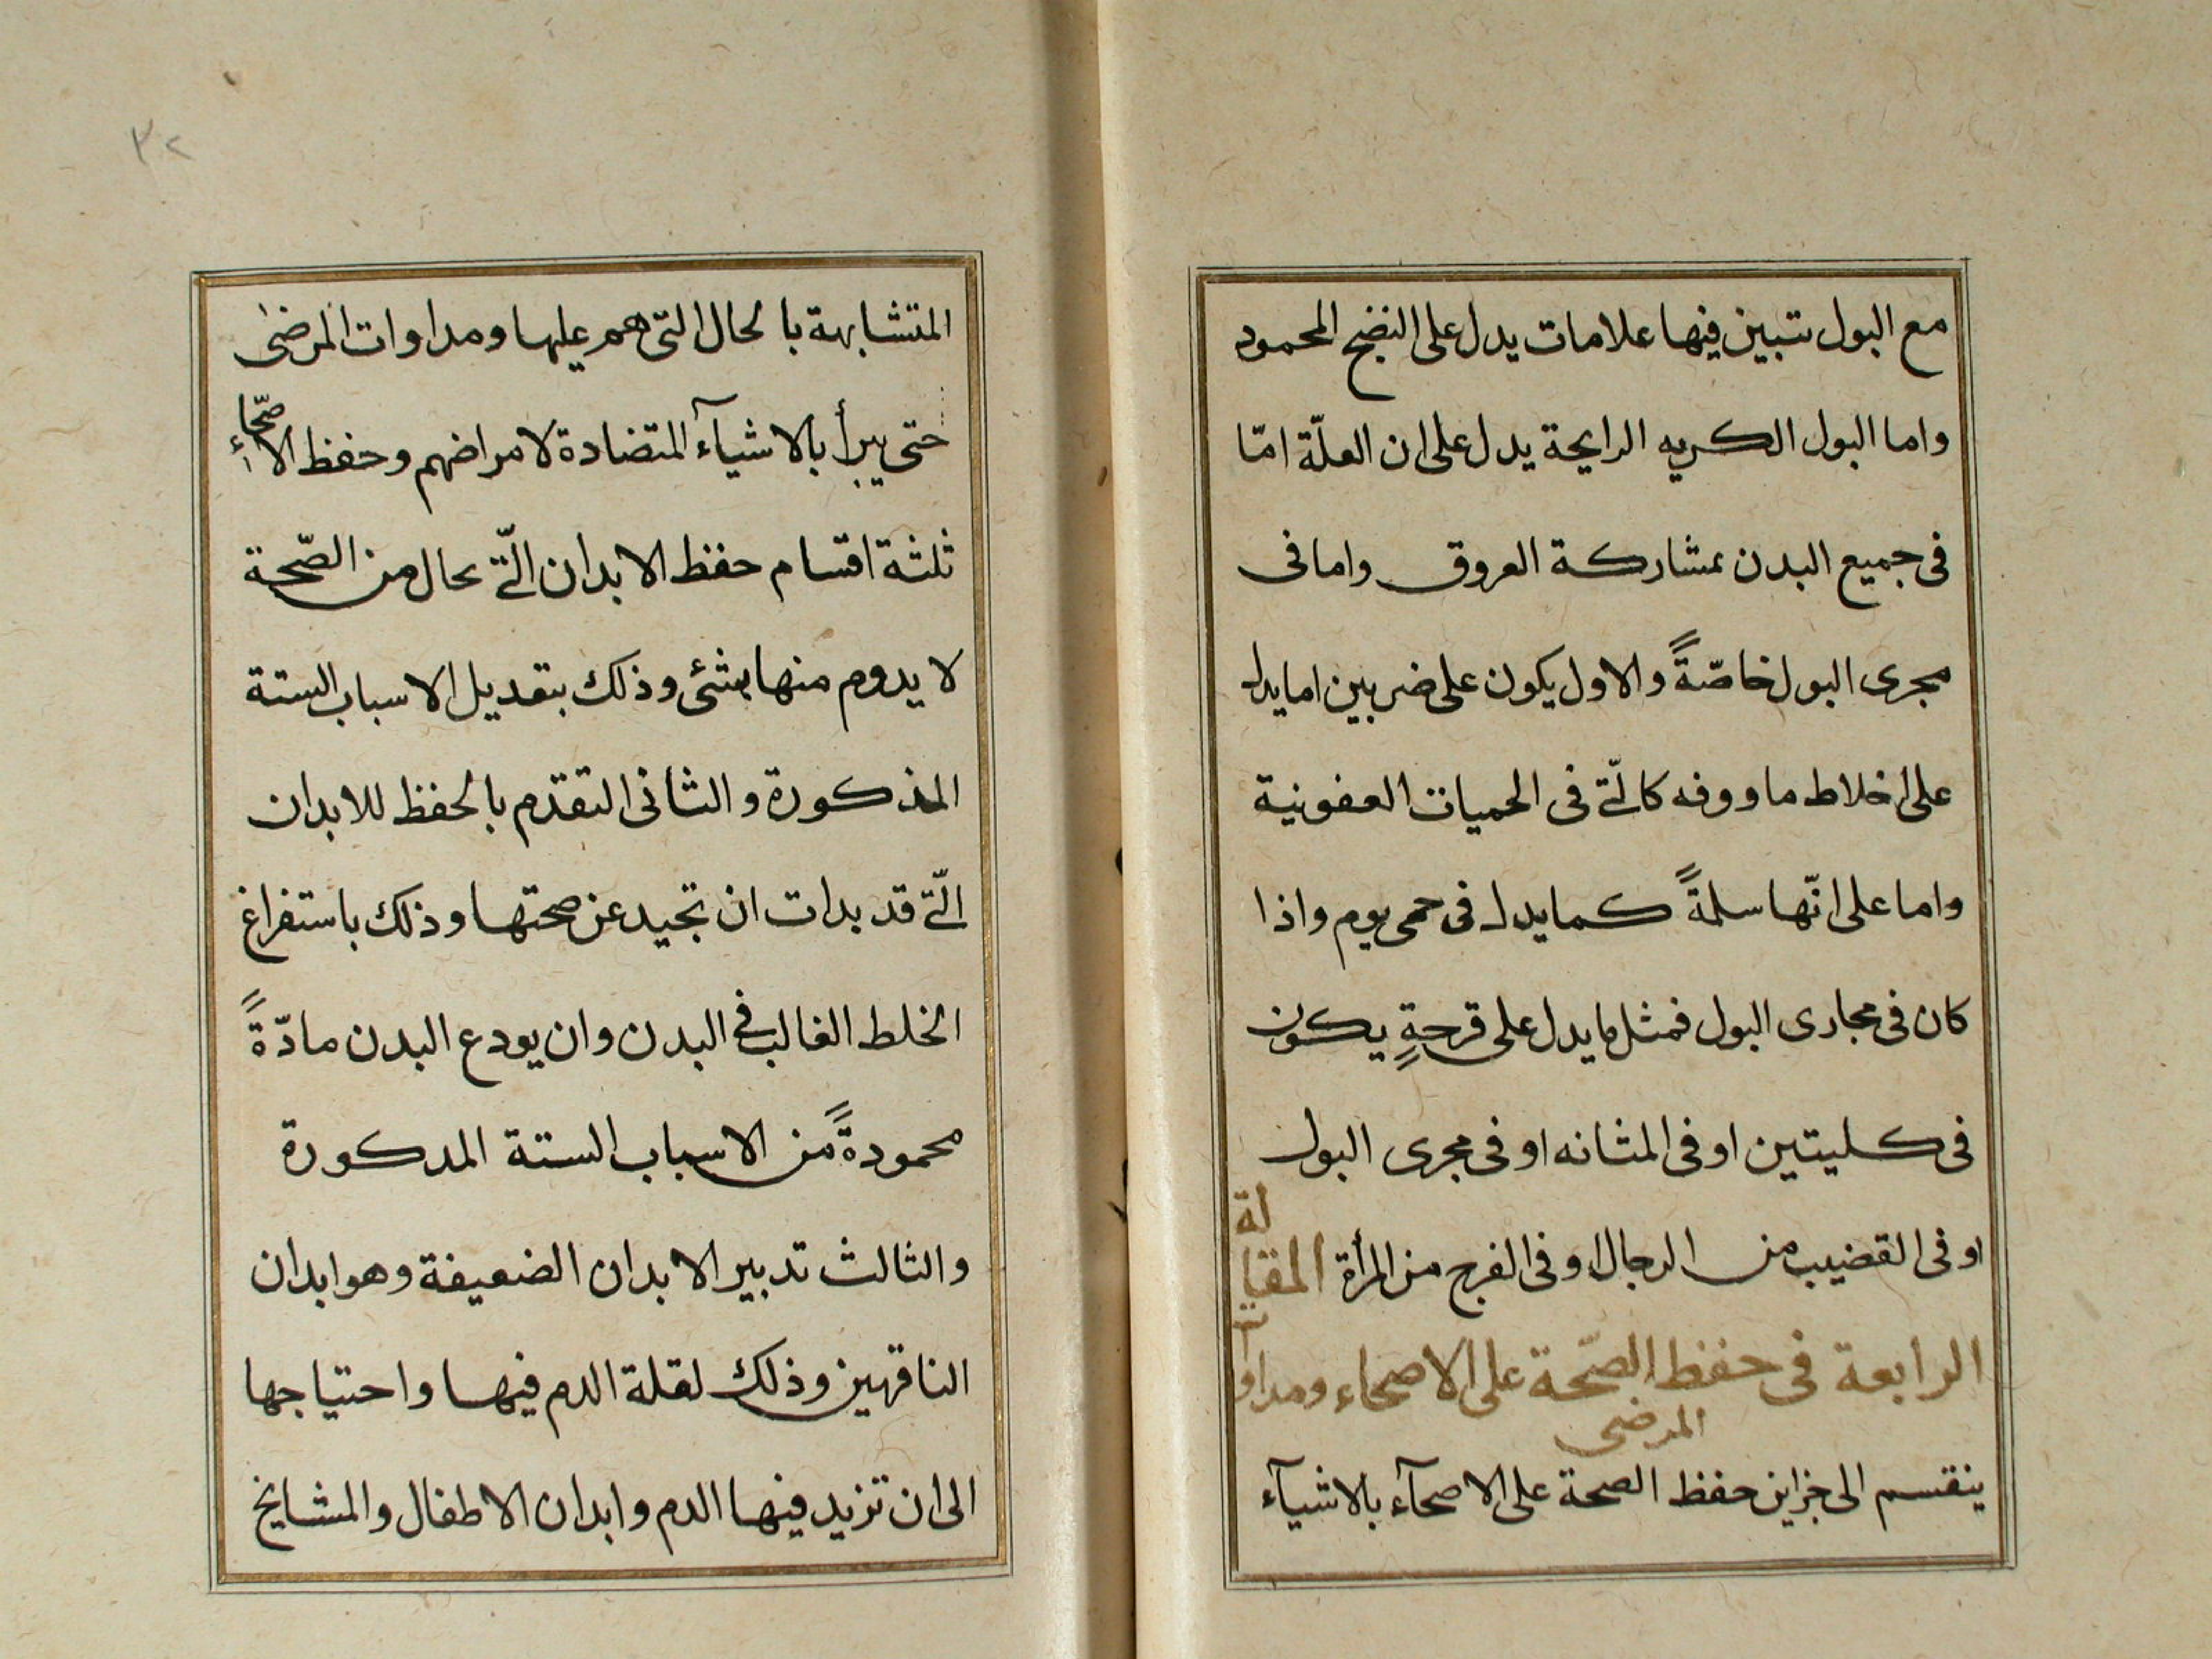 مع البول تتبين فيها علامات يدل على النضج المحمود
واما البول الكريه الرايحة يدل على ان العلّة امّا
فى جميع البدن بمشاركة العروق واما فى
مجرى البول خاصّةً والاول يكون على ضربين اما يدل
على اخلاط ماووفه كالّتى فى الحميات العفونية
واما على انّها سلمةً كما يدل فى حمى يوم واذا
كان فى مجارى البول فمثل ما يدل على قرحةٍ يكون
فى كليتين او فى المثانه او فى مجرى البول
او فى القضيب من الرجال او فى الفرج من المرأة المقالة
الرابعة فى حفظ الصّحة على الاصحاء ومداوات
المرضى
ينقسم الى جزاين حفظ الصحة على الاصحآء بالاشيآء
٣٢
المتشابهة بالحال التى هم عليها ومداوات المرضى
حتى يبرأ بالاشيآء المتضادة لامراضهم وحفظ الاصحّاء
ثلثة اقسام حفظ الابدان الّتى بحال من الصّحة
لا يدوم منها بشئ وذلك بتعديل الاسباب الستة
المذكورة والثانى التقدّم بالحفظ للابدان
الّتى قد بدات ان تحيد عن صحتها وذلك باستفراغ
الخلط الغالب فى البدن وان يودع البدن مادّةً
محمودةً من الاسباب الستة المدكورة
والثالث تدبير الابدان الضعيفة وهو ابدان
الناقهين وذلك لقلة الدم فيها واحتياجها
الى ان تزيد فيها الدم وابدان الاطفال والمشايخ